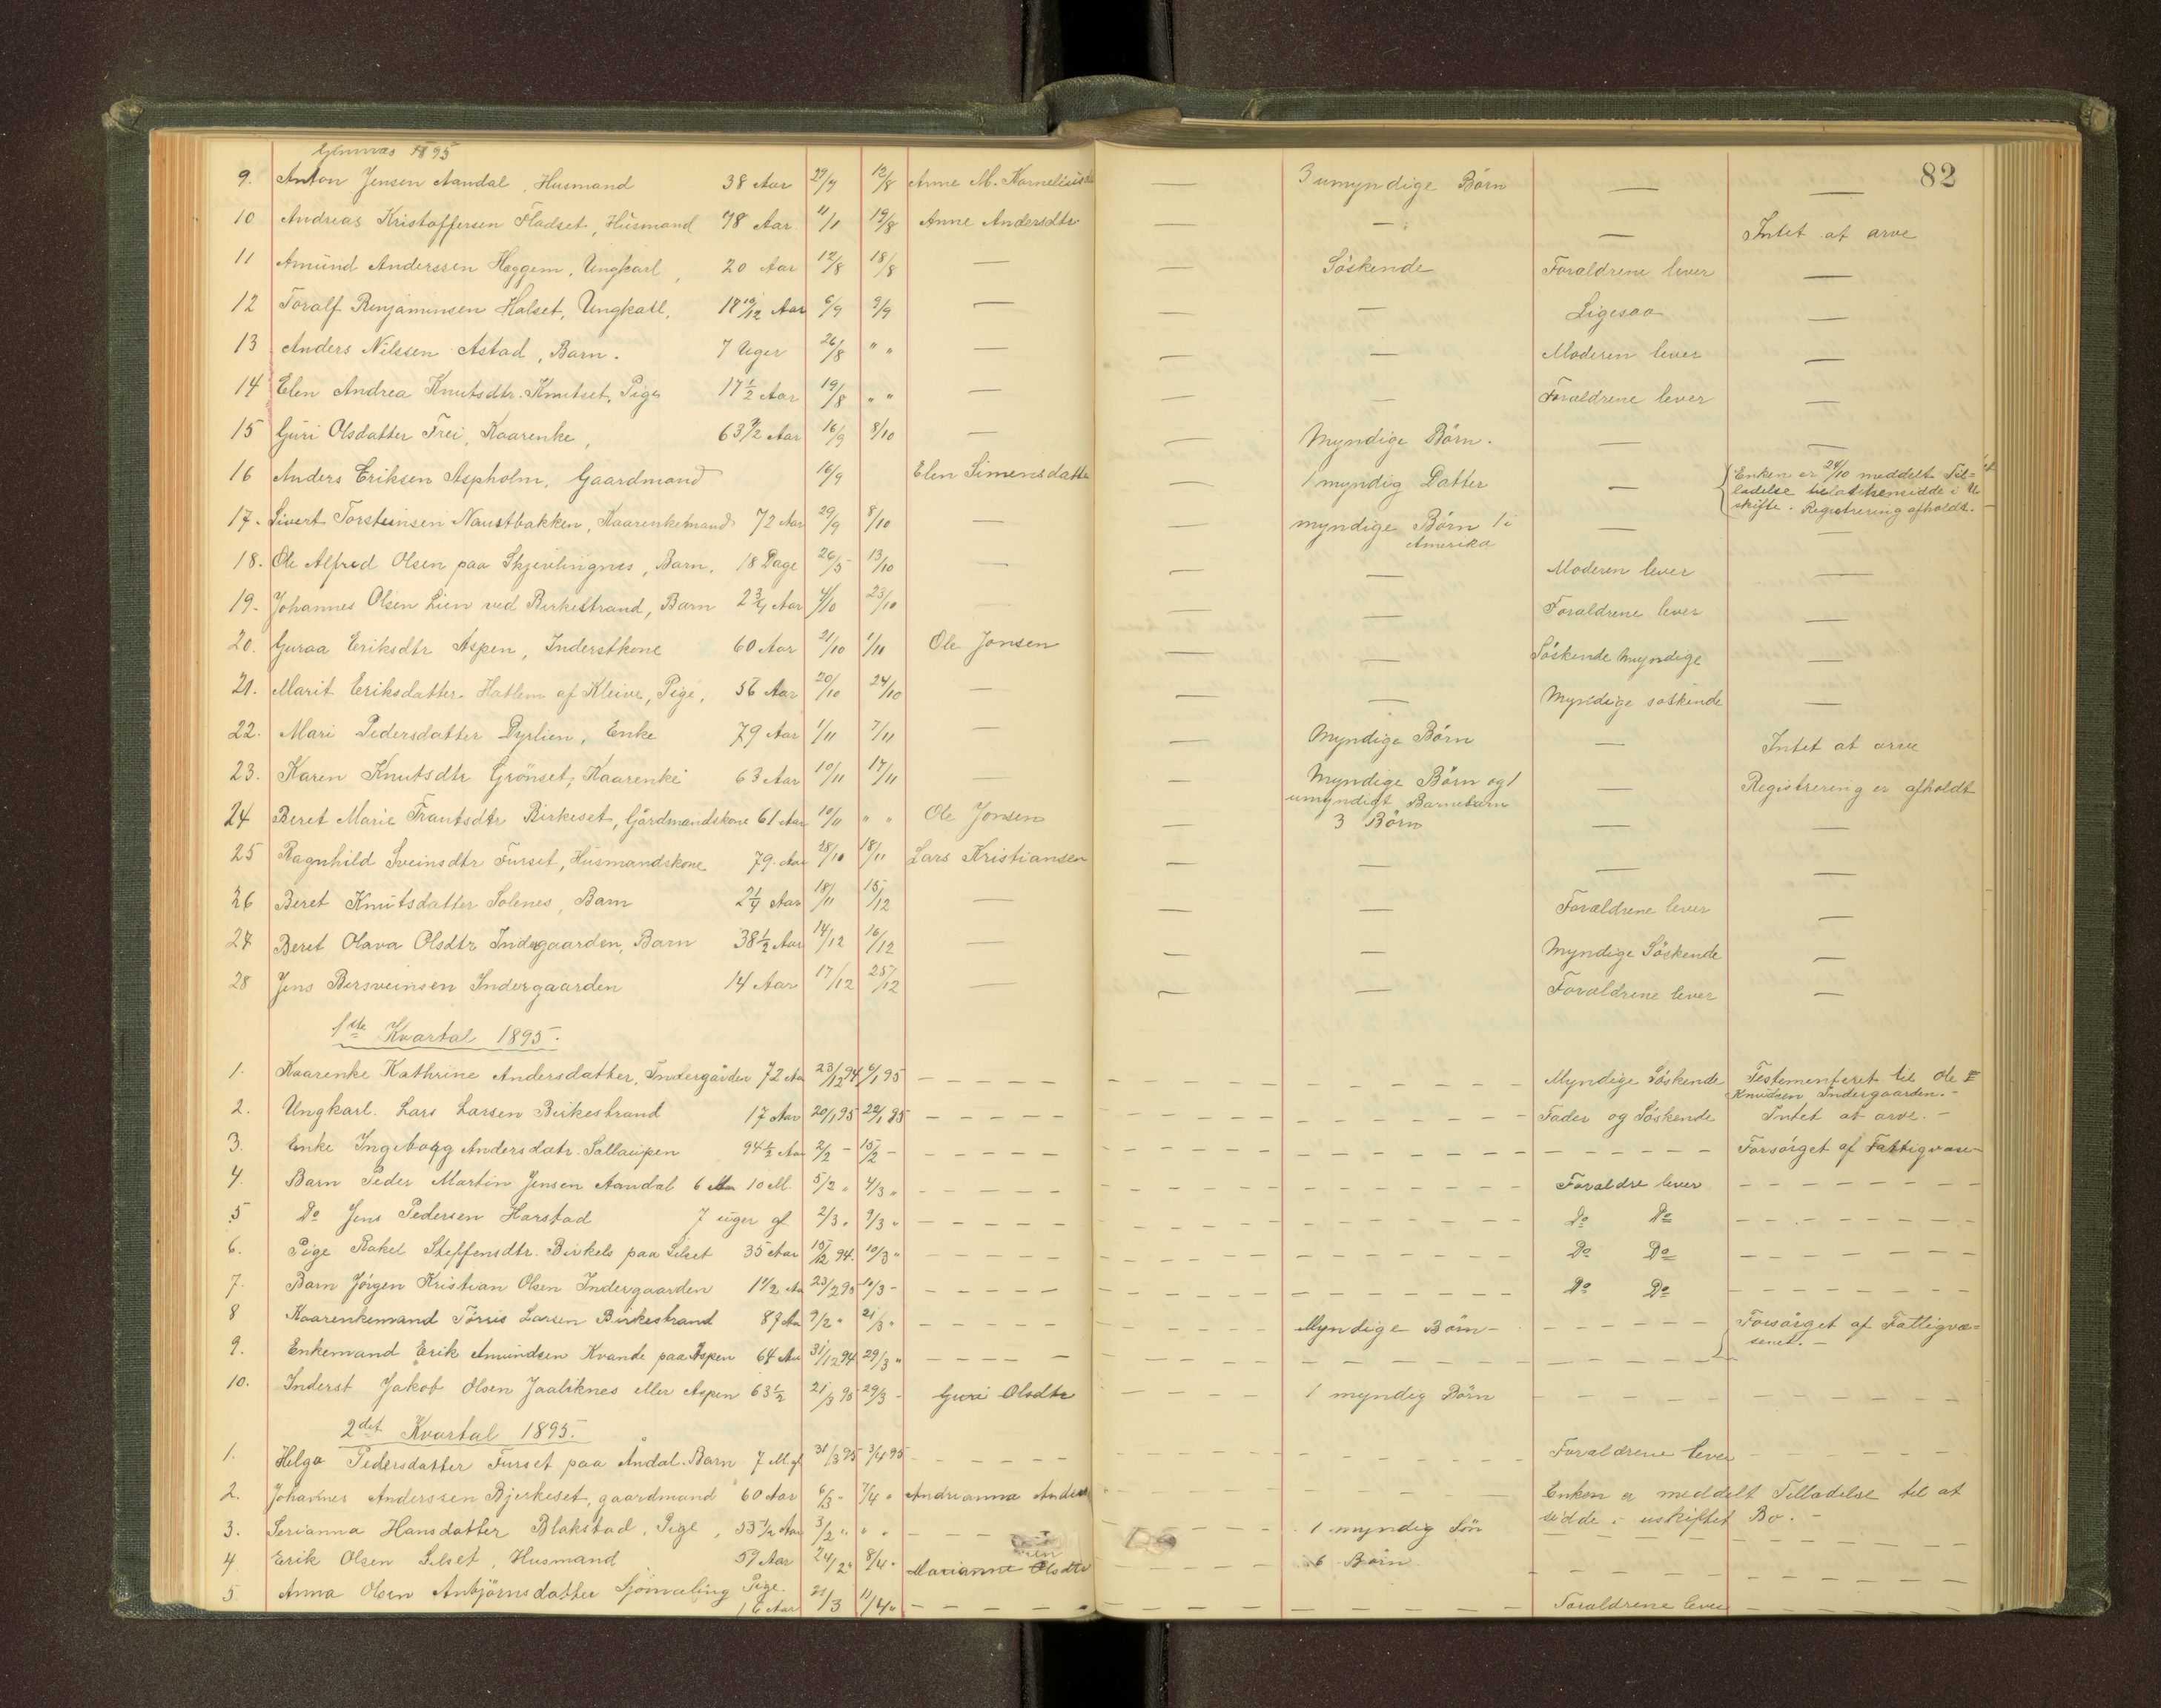 1895
82
9. Anton Jensen Aandal, Husmand 38 Aar 29/7 12/8 Anne M. — 3 umyndige Börn — —
10 Andreas Kristoffersen Fladset, Husmand 78 Aar 11/1 19/8 Anne Andersdtr — — — Intet at arve
11 Amund Anderssen Heggem, Ungkarl, 20 Aar 12/8 18/8 — — Söskende Forældrene lever —
12 Toralf Benjaminsen Halset, Ungkarl, 18 10/12 Aar 6/9 9/9 — — — Ligesaa —
13 Anders Nilssen Astad, Barn. 7 Uger 26/8 " " — — — Moderen lever —
14 Elen Andrea Knutsdtr. Knutset, Pige 17 1/2 Aar 19/8 " " — — — Forældrene lever —
15 Guri Olsdatter Frei, Kaarenke, 63 1/2 Aar 16/9 8/10 — — Myndige Börn. — —
16 Anders Eriksen Aspholm, Gaardmand 16/9 Elen Simensdatter — 1 myndig Datter — Enken er 24/10 meddelt Til=
ladelse til at hensidde i U
skifte. Registrering afholdt.
17. Sivert Torsteinsen Naustbakken, Kaarenkemand 72 Aar 29/9 8/10 — — myndige Börn 1 i — —
Amerika
18. Ole Alfred Olsen paa Skjevlingnes, Barn, 18 Dage 26/5 13/10 — — — Moderen lever —
19. Johannes Olsen Lien ved Birkestrand, Barn 2 3/4 Aar 4/10 23/10 — — Forældrene lever —
20. Guraa Eriksdtr Aspen, Inderstkone 60 Aar 21/10 1/11 Ole Jonsen — — Söskende Myndige —
21. Marit Eriksdatter Hatlem af Kleive, Pige, 56 Aar 20/10 24/10 — — — Myndige söskende —
22. Mari Pedersdatter Dyrlien, Enke 79 Aar 1/11 7/11 — — Myndige Börn — Intet at arve
23. Karen Knutsdtr Grönset, Kaarenke 63 Aar 10/11 17/11 — — Myndige Börn og 1 — Registrering er afholdt
umyndigt Barnebarn
24 Beret Marie Frantsdtr Birkeset, Gårdmandskone 61 Aar 10/11 " " Ole Jonsen 3 Börn — —
25 Ragnhild Sveinsdtr Furset, Husmandskone 79. Aar 28/10 18/11 Lars Kristiansen — — — —
26 Beret Knutsdatter Solenes, Barn 2 1/4 Aar 18/11 15/12 — — — Forældrene lever —
27 Beret Olava Olsdtr Indergaarden, Barn 38 1/2 Aar 14/12 16/12 — — — Myndige Söskende —
28 Jens Bersveinsen Indergaarden 14 Aar 17/12 25/12 — — — Forældrene lever —
1ste Kvartal 1895.
1. Kaarenke Kathrine Andersdatter, Indergården 72 Aa 23/12 94 6/1 95 Myndige Söskende Testementeret til Ole E
Knudsen Indergaarden.
2. Ungkarl. Lars Larsen Birkestrand 17 Aar 20/1 95 22/1 95 Fader og Söskende Intet at arve. -
3. Enke Ingeborg Andersdatr. Sollaupen 94 1/2 Aa 2/2 - 15/2 - Forsörget af Fattigvæse-
4. Barn Peder Martin Jensen Aandal 6 10 M. 5/2 " 4/3 " Forældre lever
5 Do Jens Pedersen Harstad 7 uger gl 2/3 " 9/3 " Do Do
6. Pige Rakel Steffensdtr. Birkels paa Silset 35 Aar 15/12 94. 10/3 " Do Do
7. Barn Jörgen Kristian Olsen Indergaarden 1 1/2 Aa 23/2 95 10/3 - Do Do
8 Kaarenkemand Törris Larsen Birkestrand 87 Aa 9/2 " 21/3 " Myndige Börn - Forsörget af Fattigvæ=
senet. -
9. Enkemand Erik Amundsen Kvande paa Aspen 64 Aar 31/12 94 29/3 "
10. Inderst Jakob Olsen Jaaliknes eller Aspen 63 1/2 21/3 95 29/3 - Guri Olsdtr 1 myndig Börn
2det Kvartal 1895.
1. Helga Pedersdatter Furset paa Åndal. Barn 7 M gl 31/3 95 3/4 95 Forældrene lever
2. Johannes Anderssen Bjerkeset, gaardmand 60 Aar 6/3 - 7/4 " Andrianna Enken er meddelt Tilladelse til at
sidde i uskiftet Bo. -
3. Serianna Hansdatter Blakstad, Pige, 53 1/2 Aar 3/2 " " " 1 myndig Sön
4 Erik Olsen Silset, Husmand 59 Aar 24/2 " 8/4 " Marianne Olsdtr 6 Börn
5. Anna Olsen Anbjörnsdatter Sjömæling Pige. 16 Aar 21/3 11/4 " Forældrene lever